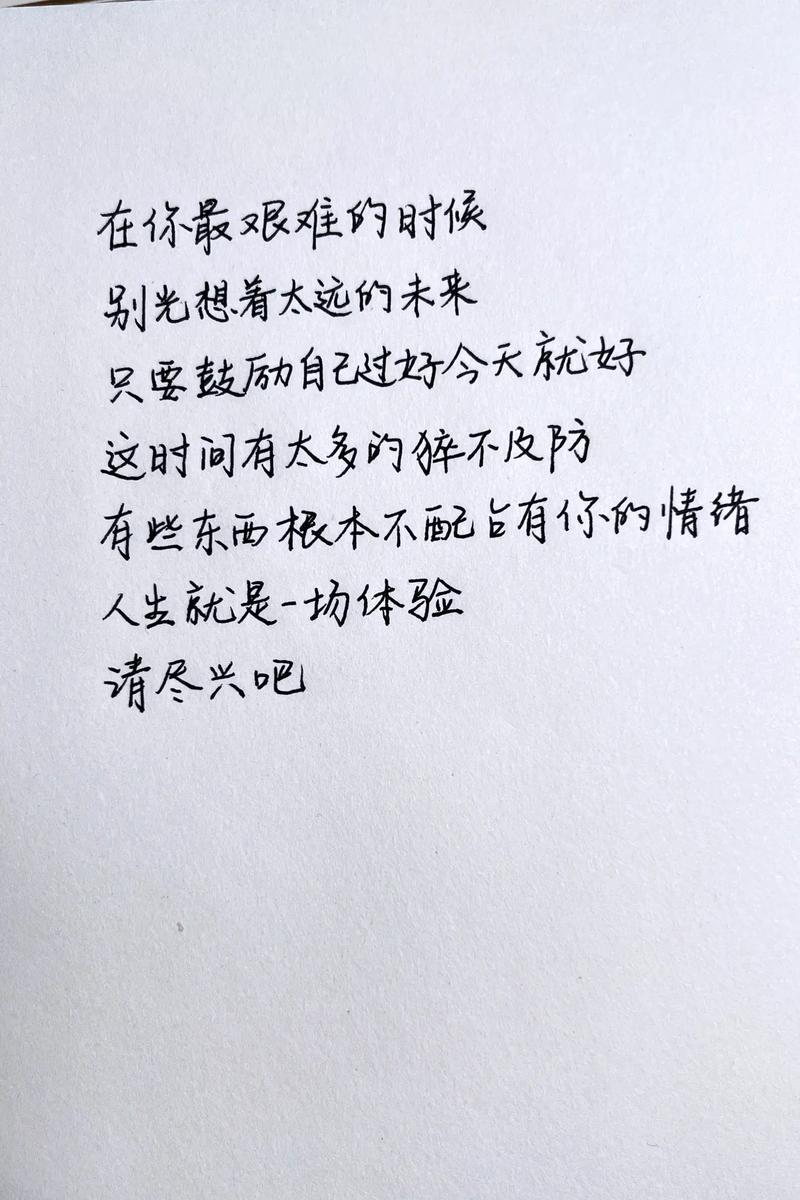 在你最艰难的时候
别光想着太远的未来
只要鼓励自己过好今天就好
这时间有太多的猝不及防
有些东西根本不配占有你的情绪
人生就是一场体验
请尽兴吧